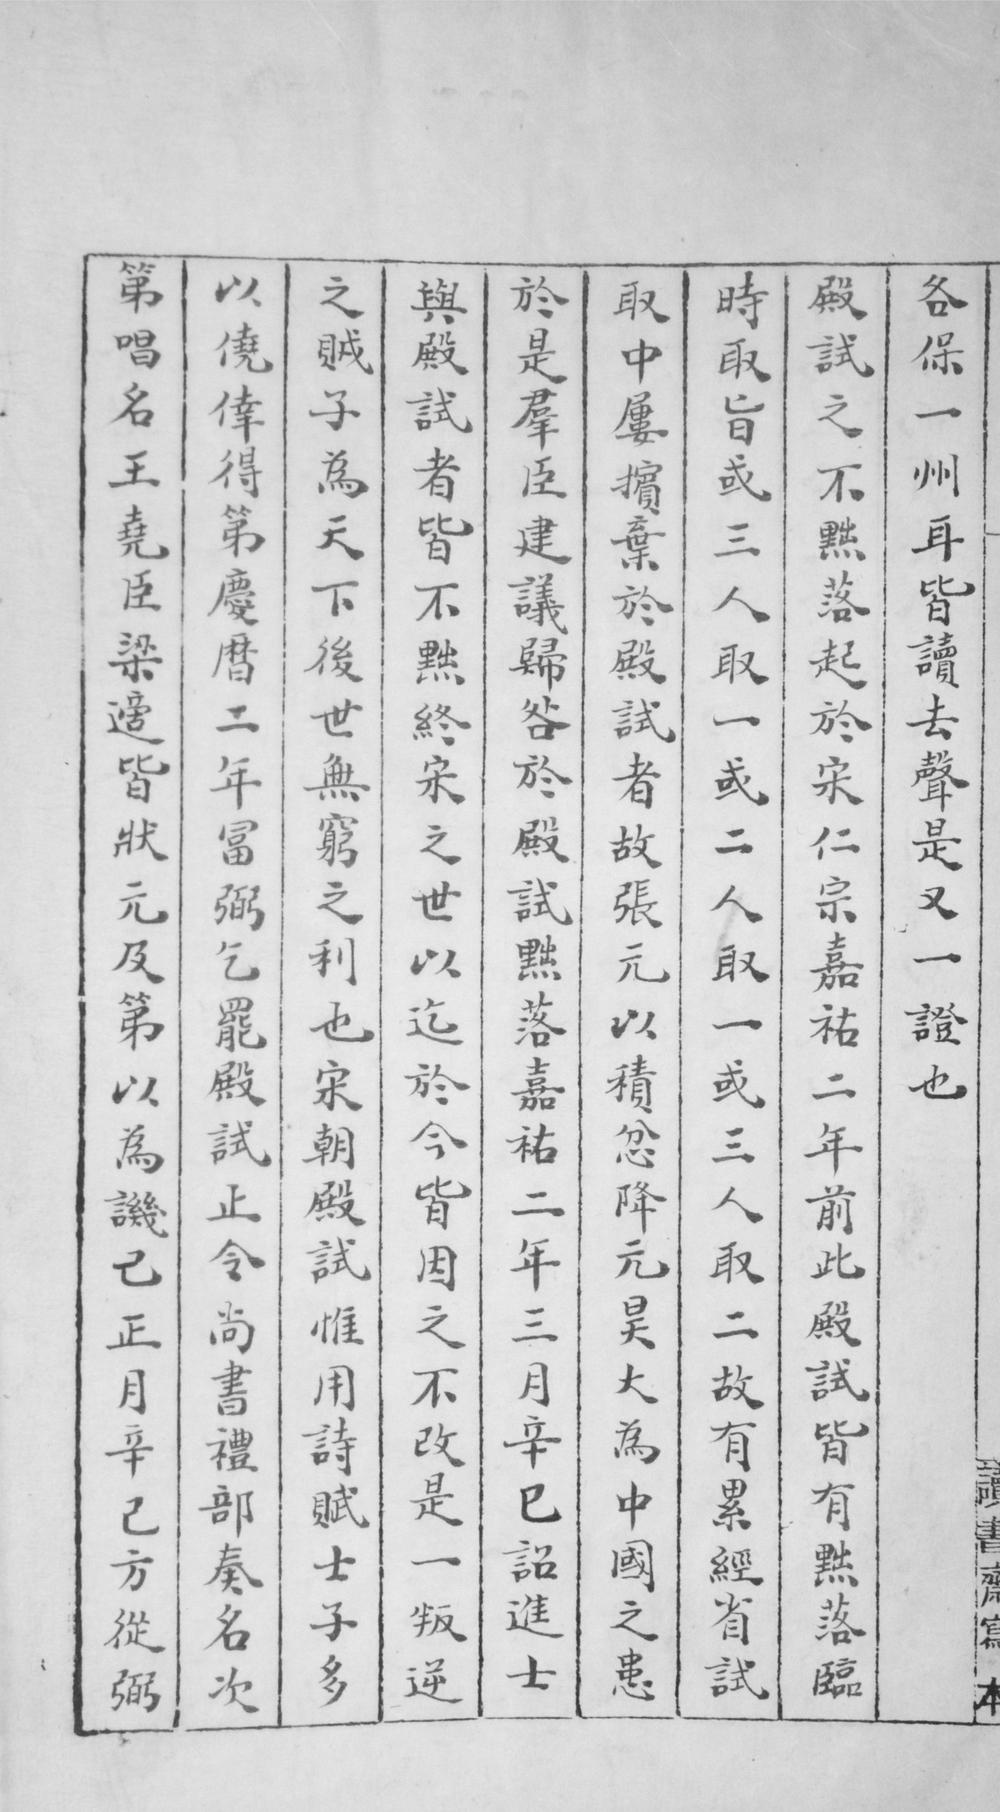 各保一州耳皆讀去聲是又一證也
殿試之不黜落起於宋仁宗嘉祐二年前此殿試皆有黜落臨
時取旨或三人取一或二人取一或三人取二故有累經省試
取中屢擯棄於殿試者故張元以積忿降元昊大為中國之患
於是羣臣建議歸咎於殿試黜落嘉祐二年三月辛巳詔進士
與殿試者皆不黜終宋之世以迄於今皆因之不改是一叛逆
之賊子為天下後世無窮之利也宋朝殿試惟用詩賦士子多
以僥倖得第慶暦二年冨弼乞罷殿試止令尚書禮部奏名次
第唱名王堯臣梁適皆狀元及第以為譏已正月辛已方從弼
讀書齋寫本